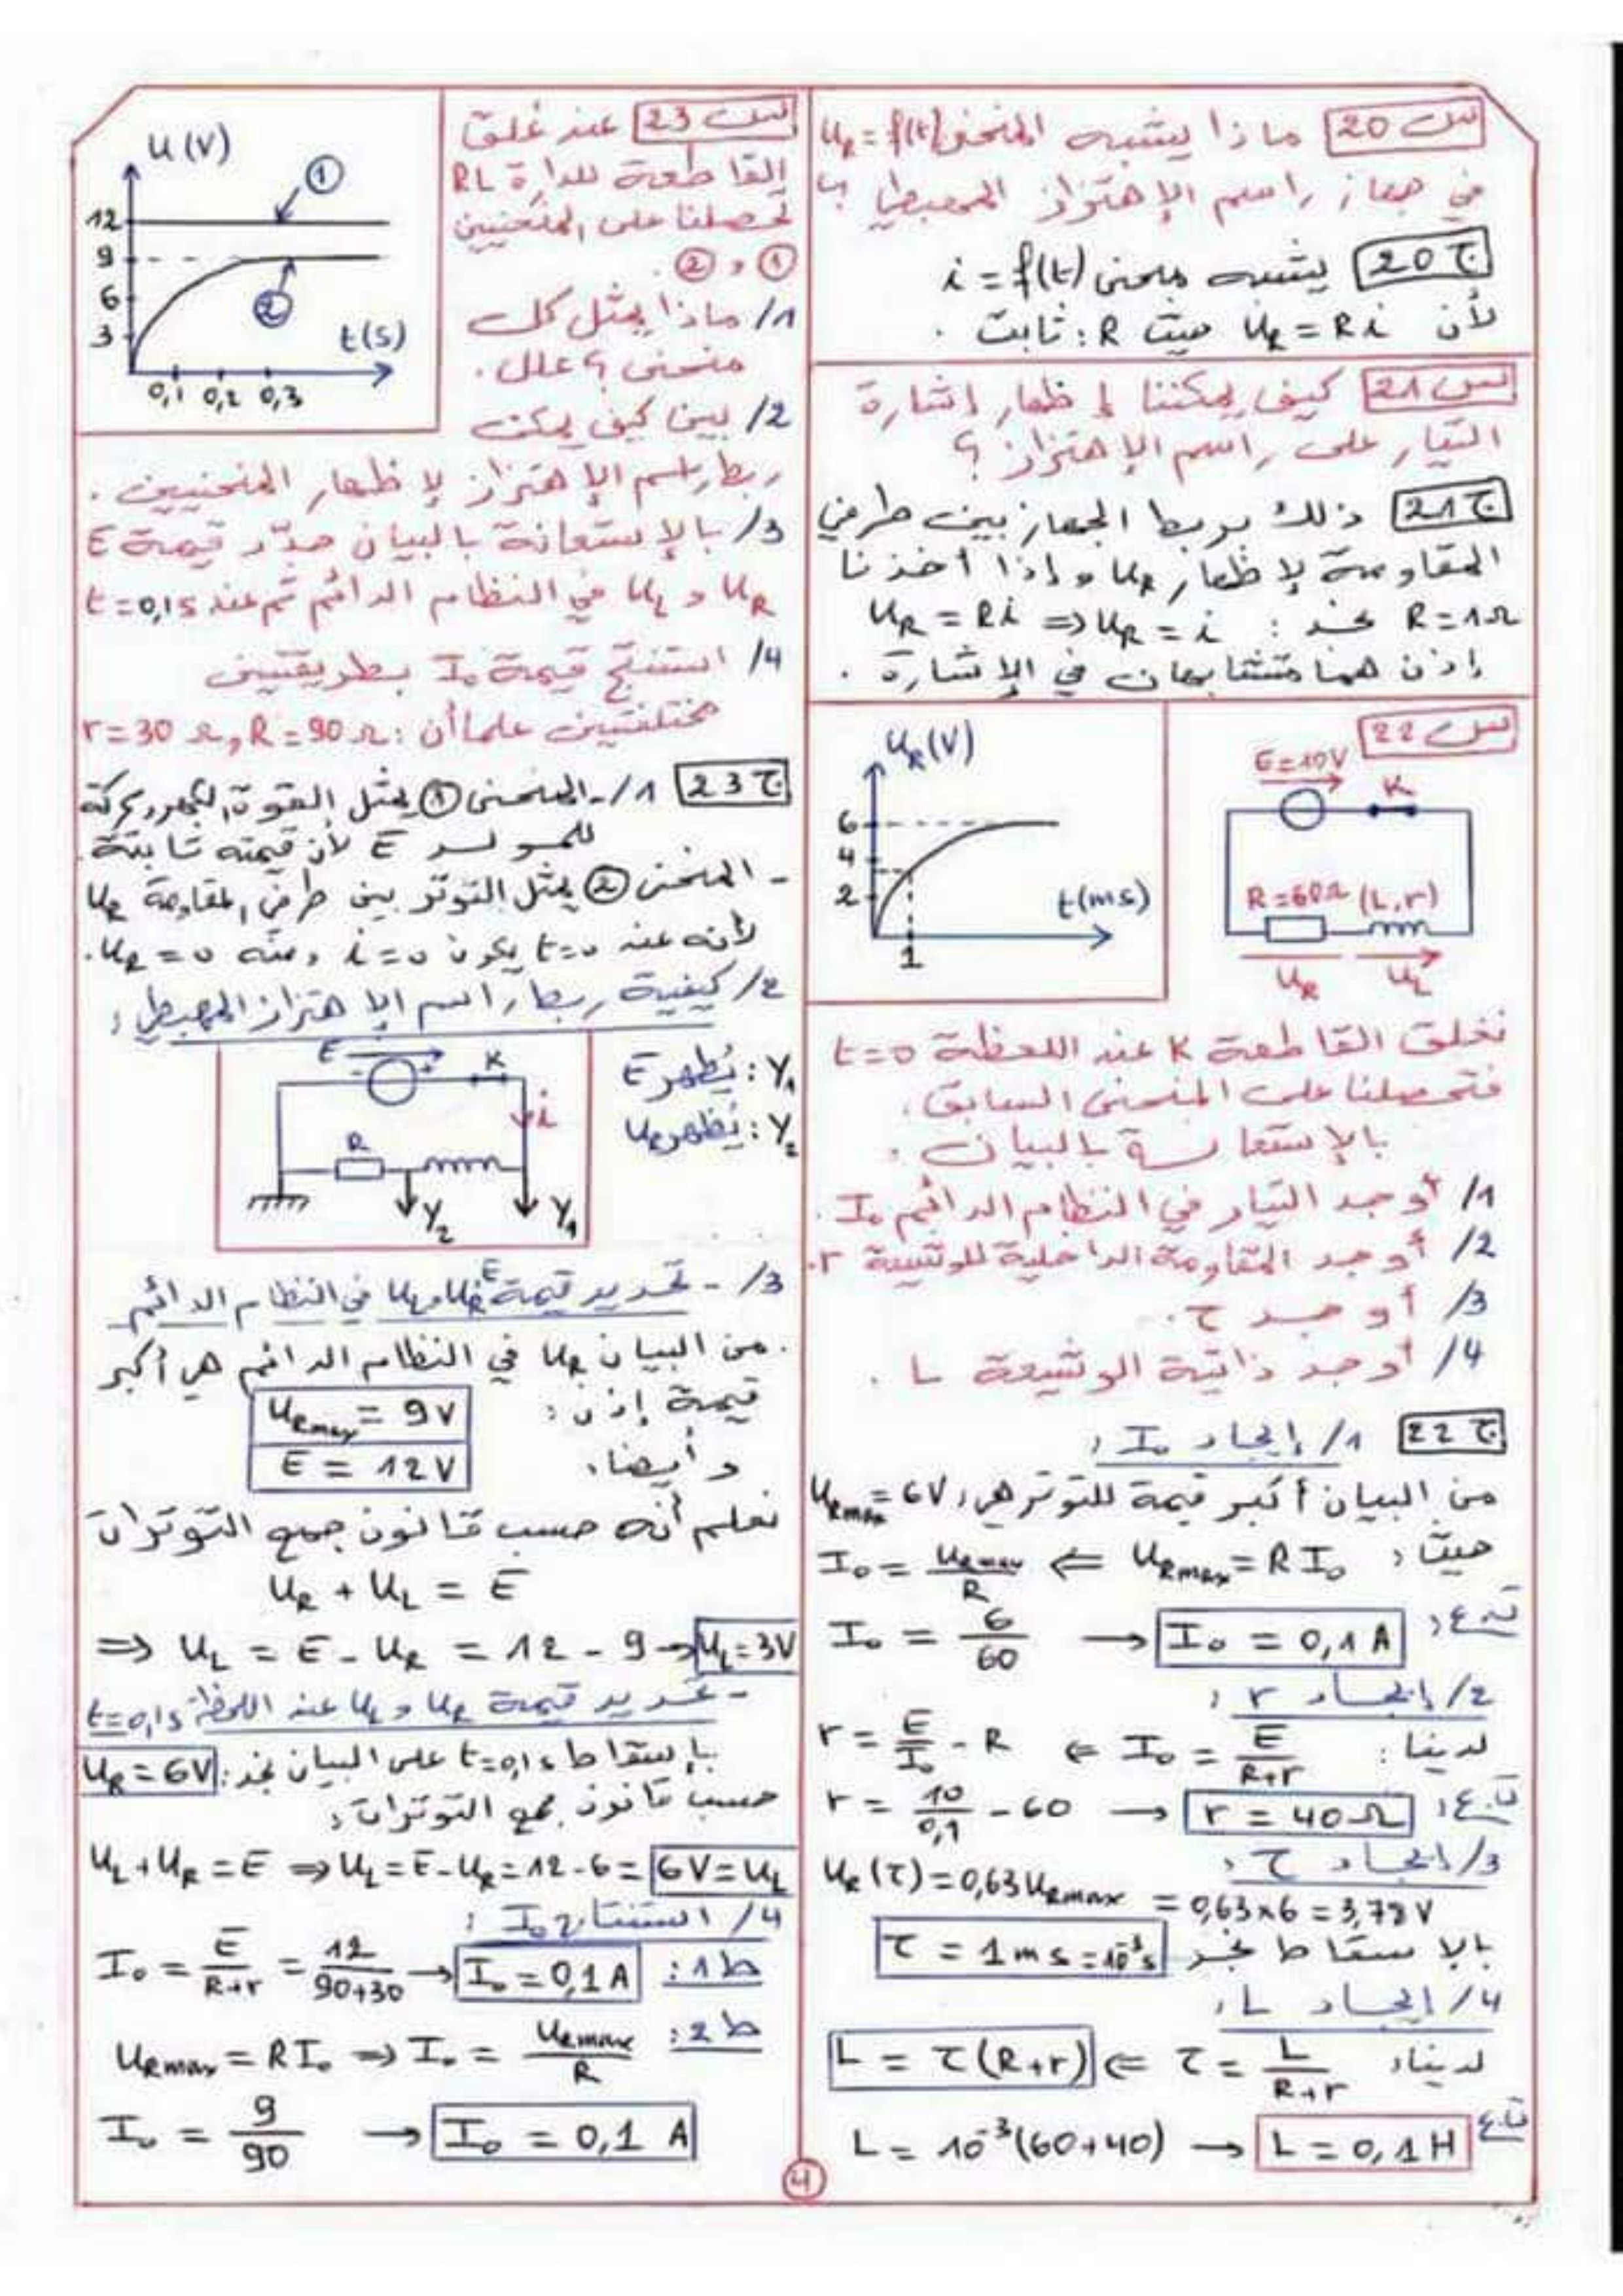 س 20 ماذا يشبه المنحنى u_R = f(t)
في جهاز راسم الإهتزاز المهبطي ؟
ج 20 يشبه منحنى i = f(t)
لأن u_R = Ri حيث R : ثابت .
س 21 كيف يمكننا إظهار إشارة
التيار على راسم الإهتزاز ؟
ج 21 ذلك بربط الجهاز بين طرفي
المقاومة لإظهار u_R و إذا أخذنا
R = 1Ω نجد : u_R = Ri ⇒ u_R = i
إذن هما متشابهان في الإشارة .
س 22
u_R (V)
6
4
2
1
t(ms)
E = 10V
K
R = 60Ω (L,r)
u_R u_L
نغلق القاطعة K عند اللحظة t = 0
فتحصلنا على المنحنى السابق .
بالإستعانة بالبيان :
1/ أوجد التيار في النظام الدائم I₀ .
2/ أوجد المقاومة الداخلية للوشيعة r .
3/ أوجد τ .
4/ أوجد ذاتية الوشيعة L .
ج 22 1/ إيجاد I₀ :
من البيان أكبر قيمة للتوتر هي : u_Rmax = 6V
حيث : u_Rmax = R I₀ ⇐ I₀ = u_Rmax / R
ت.ع : I₀ = 6/60 → I₀ = 0,1 A
2/ إيجاد r :
لدينا : I₀ = E/(R+r) ⇐ r = E/I₀ - R
ت.ع : r = 10/0,1 - 60 → r = 40 Ω
3/ إيجاد τ :
u_R(τ) = 0,63 u_Rmax = 0,63×6 = 3,78 V
بالإسقاط نجد τ = 1 ms = 10⁻³ s
4/ إيجاد L :
لدينا : τ = L/(R+r) ⇐ L = τ(R+r)
ت.ع L = 10⁻³(60+40) → L = 0,1 H
س 23 عند غلق
القاطعة للدارة RL
تحصلنا على المنحنيين
① و ② .
u (V)
①
12
9
6
3
②
t(s)
0,1 0,2 0,3
1/ ماذا يمثل كل
منحنى ؟ علل .
2/ بين كيف يمكن
ربط راسم الإهتزاز لإظهار المنحنيين .
3/ بالإستعانة بالبيان حدّد قيمة E
u_R و u_L في النظام الدائم ثم عند t = 0,1s
4/ استنتج قيمة I₀ بطريقتين
مختلفتين علما أن : r = 30 Ω , R = 90 Ω
ج 23 1/ - المنحنى ① يمثل القوة الكهرومحركة
للمولد E لأن قيمته ثابتة .
- المنحنى ② يمثل التوتر بين طرفي المقاومة u_R
لأنه عند t=0 يكون i = 0 ومنه u_R = 0 .
2/ كيفية ربط راسم الإهتزاز المهبطي :
E
K
i
R
Y₂
Y₁
Y₁ : يُظهر E
Y₂ : يُظهر u_R
3/ - تحديد قيمة E u_R و u_L في النظام الدائم
. من البيان u_R في النظام الدائم هي أكبر
قيمة إذن : u_Rmax = 9V
و أيضا : E = 12V
نعلم أنه حسب قانون جمع التوترات
u_R + u_L = E
⇒ u_L = E - u_R = 12 - 9 → u_L = 3V
- تحديد قيمة u_R و u_L عند اللحظة t = 0,1s
بإسقاط t = 0,1s على البيان نجد : u_R = 6V
حسب قانون جمع التوترات :
u_L + u_R = E ⇒ u_L = E - u_R = 12 - 6 = 6V = u_L
4/ استنتاج I₀ :
ط 1 : I₀ = E/(R+r) = 12/(90+30) → I₀ = 0,1 A
ط 2 : u_Rmax = R I₀ ⇒ I₀ = u_Rmax / R
I₀ = 9/90 → I₀ = 0,1 A
4